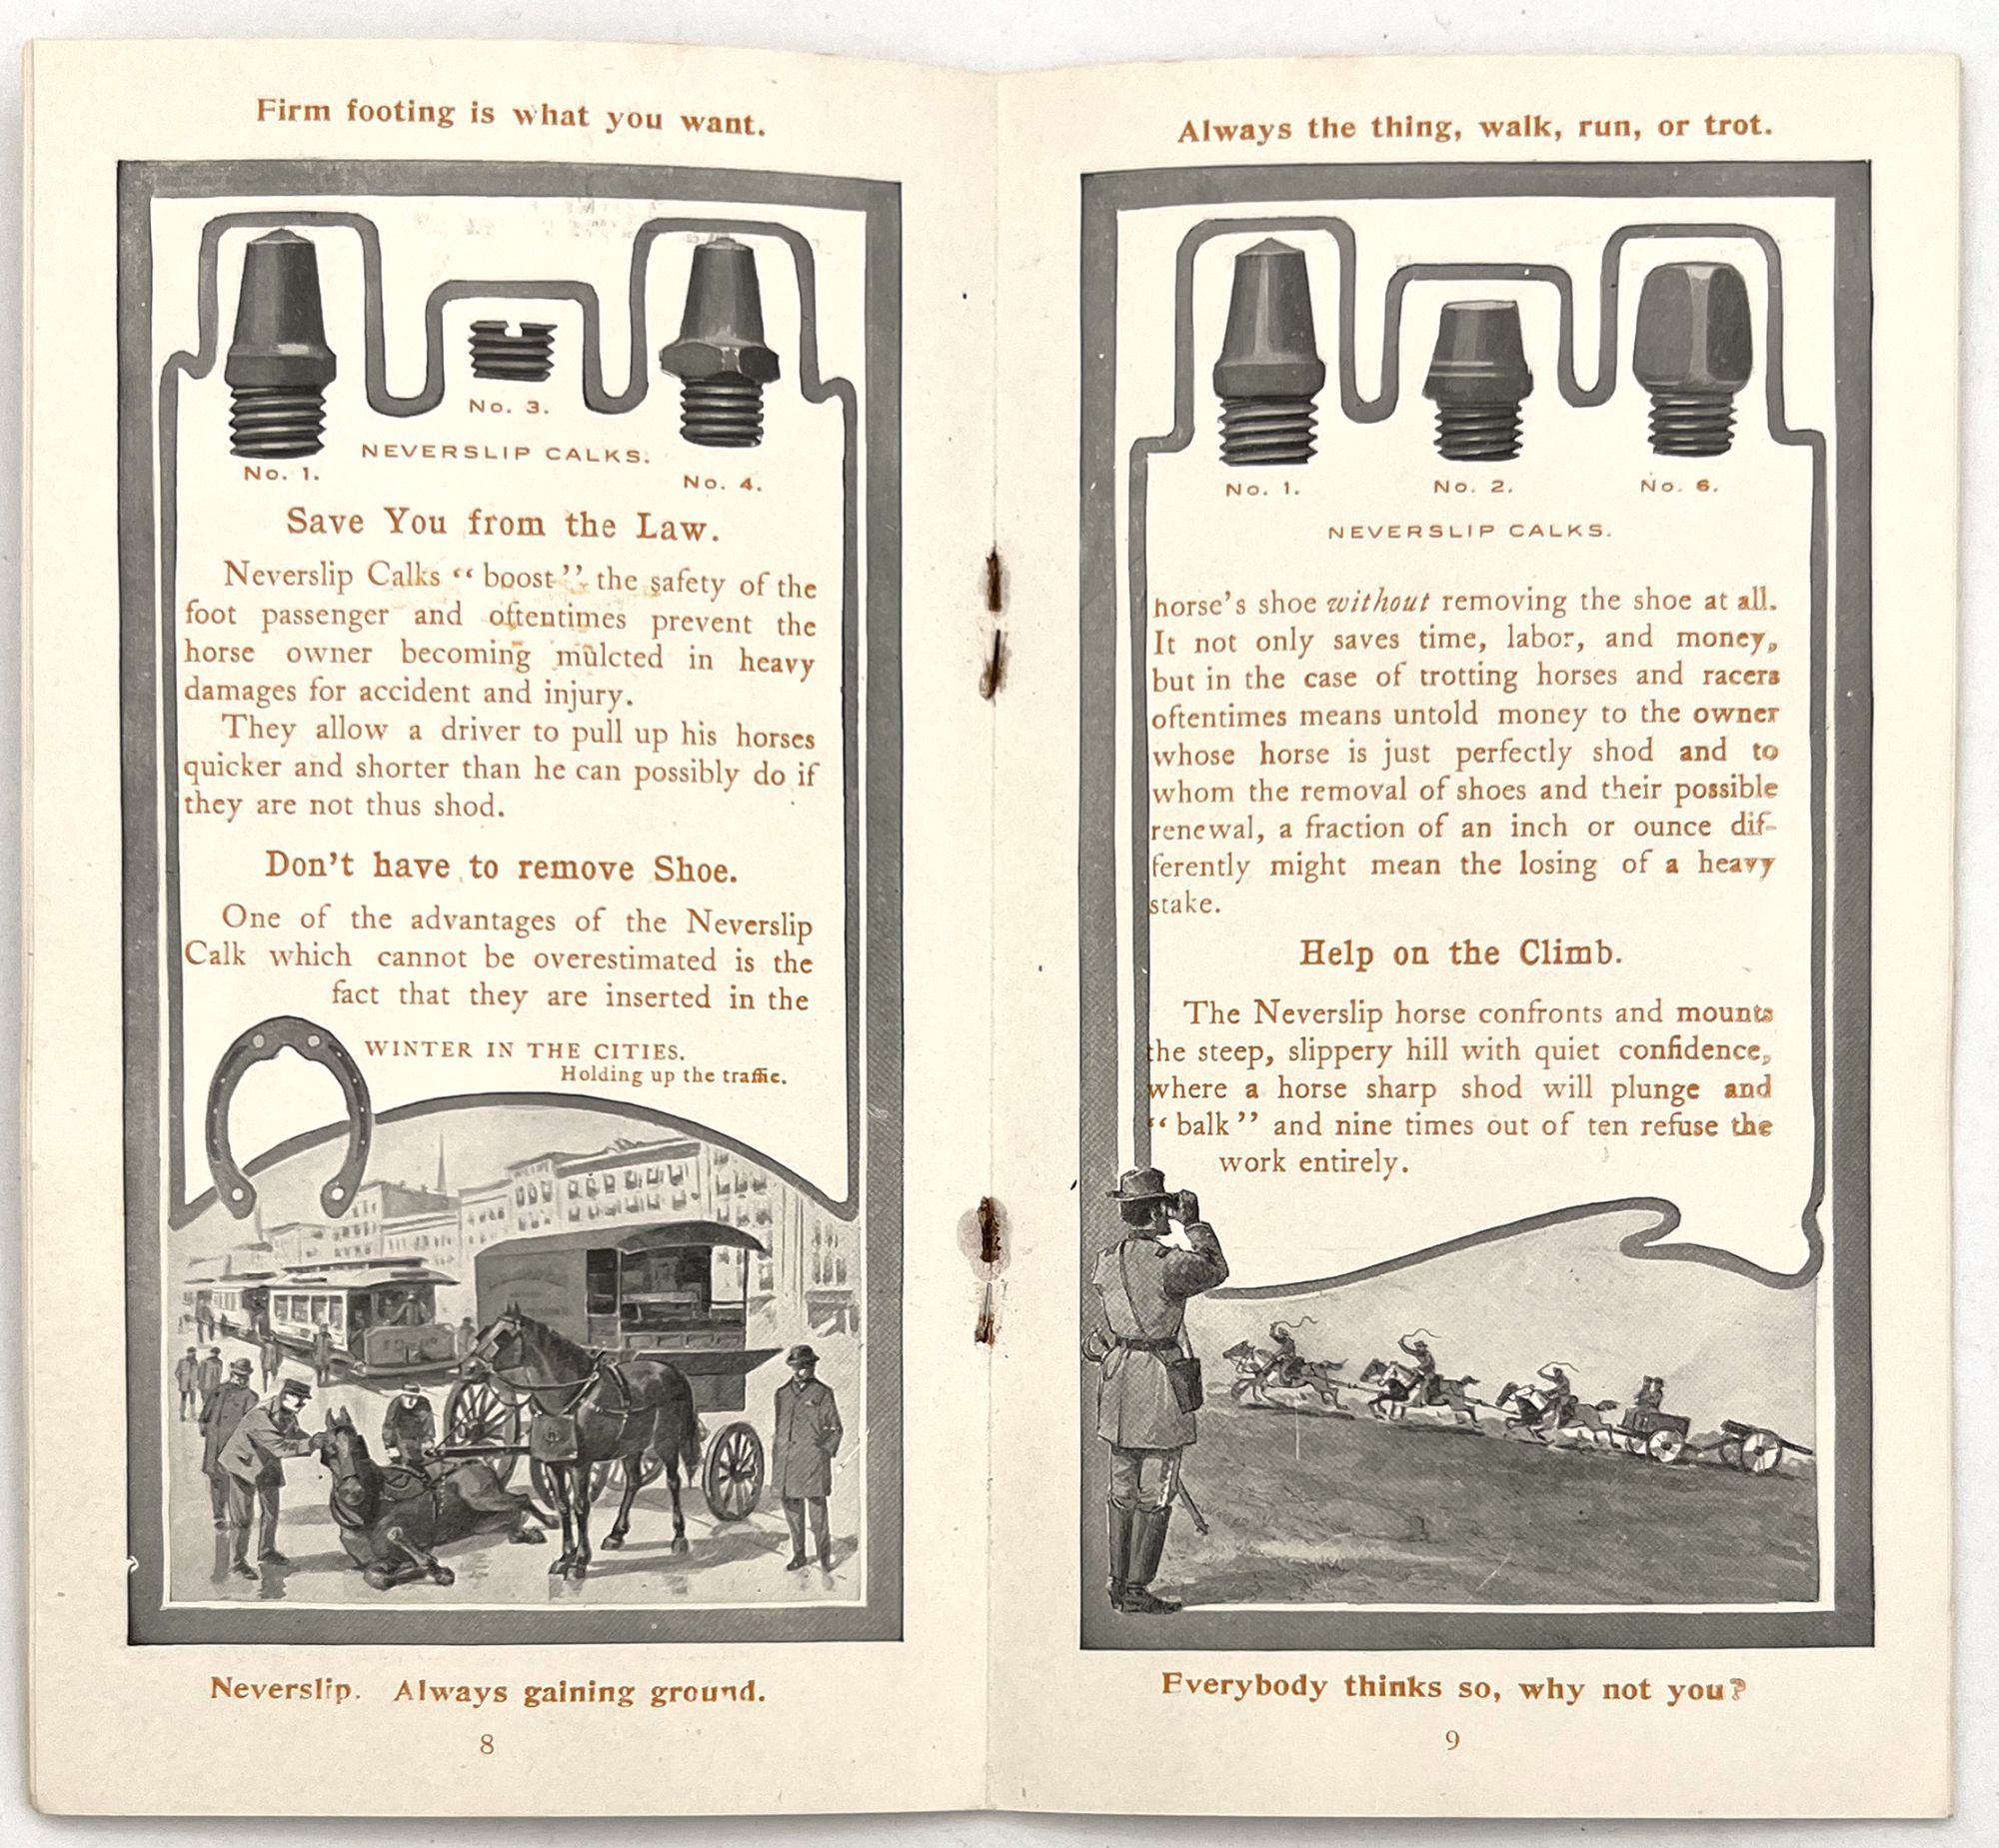 Firm footing is what you want.
No. 3.
NEVERSLIP CALKS.
No. 1.
No. 4.
Save You from the Law.
Neverslip Calks “ boost ” the safety of the
foot passenger and oftentimes prevent the
horse owner becoming mulcted in heavy
damages for accident and injury.
They allow a driver to pull up his horses
quicker and shorter than he can possibly do if
they are not thus shod.
Don't have to remove Shoe.
One of the advantages of the Neverslip
Calk which cannot be overestimated is the
fact that they are inserted in the
WINTER IN THE CITIES.
Holding up the traffic.
Neverslip. Always gaining ground.
8
Always the thing, walk, run, or trot.
No. 1.
No. 2.
No. 6.
NEVERSLIP CALKS.
horse's shoe without removing the shoe at all.
It not only saves time, labor, and money,
but in the case of trotting horses and racers
oftentimes means untold money to the owner
whose horse is just perfectly shod and to
whom the removal of shoes and their possible
renewal, a fraction of an inch or ounce dif-
ferently might mean the losing of a heavy
stake.
Help on the Climb.
The Neverslip horse confronts and mounts
the steep, slippery hill with quiet confidence,
where a horse sharp shod will plunge and
“ balk ” and nine times out of ten refuse the
work entirely.
Everybody thinks so, why not you?
9